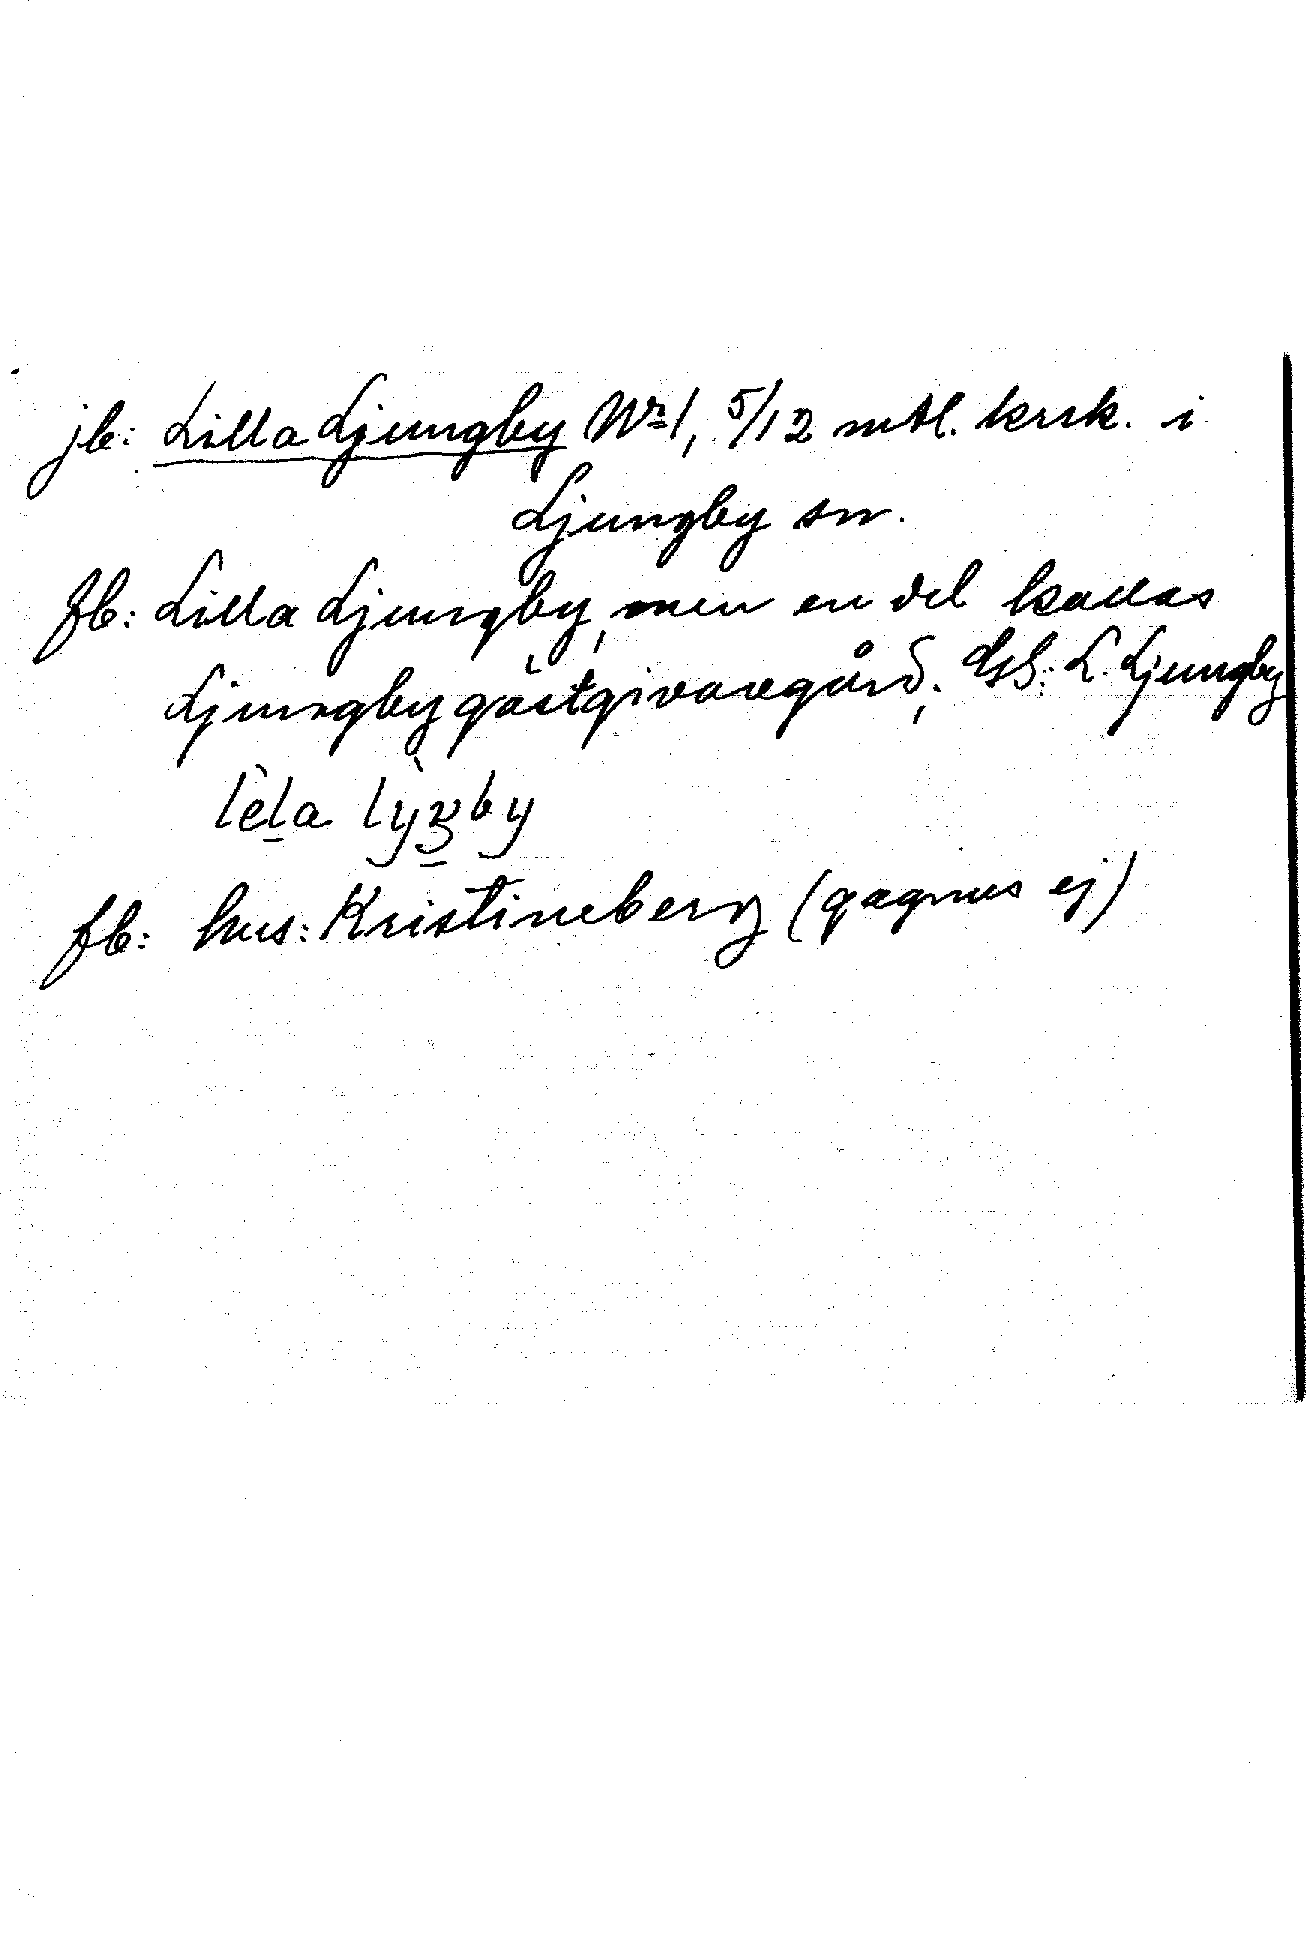 jb: Lilla Ljungby No 1, 5/12 mtl. krsk. i
Ljungby sn.
fb: Lilla Ljungby, men en del kallas
Ljungby gästgivaregård; GS: L. Ljungby
lèla lỳŋby
fb: hus: Kristineberg (gagnes ej)